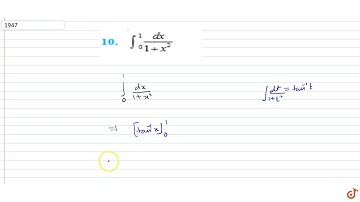 1947
10. ∫₀¹ dx/(1+x²)
∫₀¹ dx/(1+x²)
∫ dt/(1+t²) = tan⁻¹t
=) [tan⁻¹x]₀¹